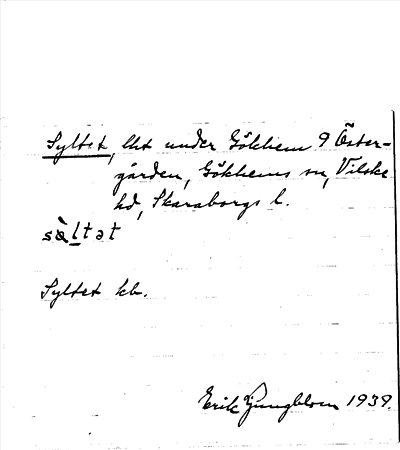 Syltet, lht under Gökhem 9 Öster-
gården, Gökhems sn, Vilske
hd, Skaraborgs l.
sàltat
Syltet kb.
Erik Ljungblom 1939.